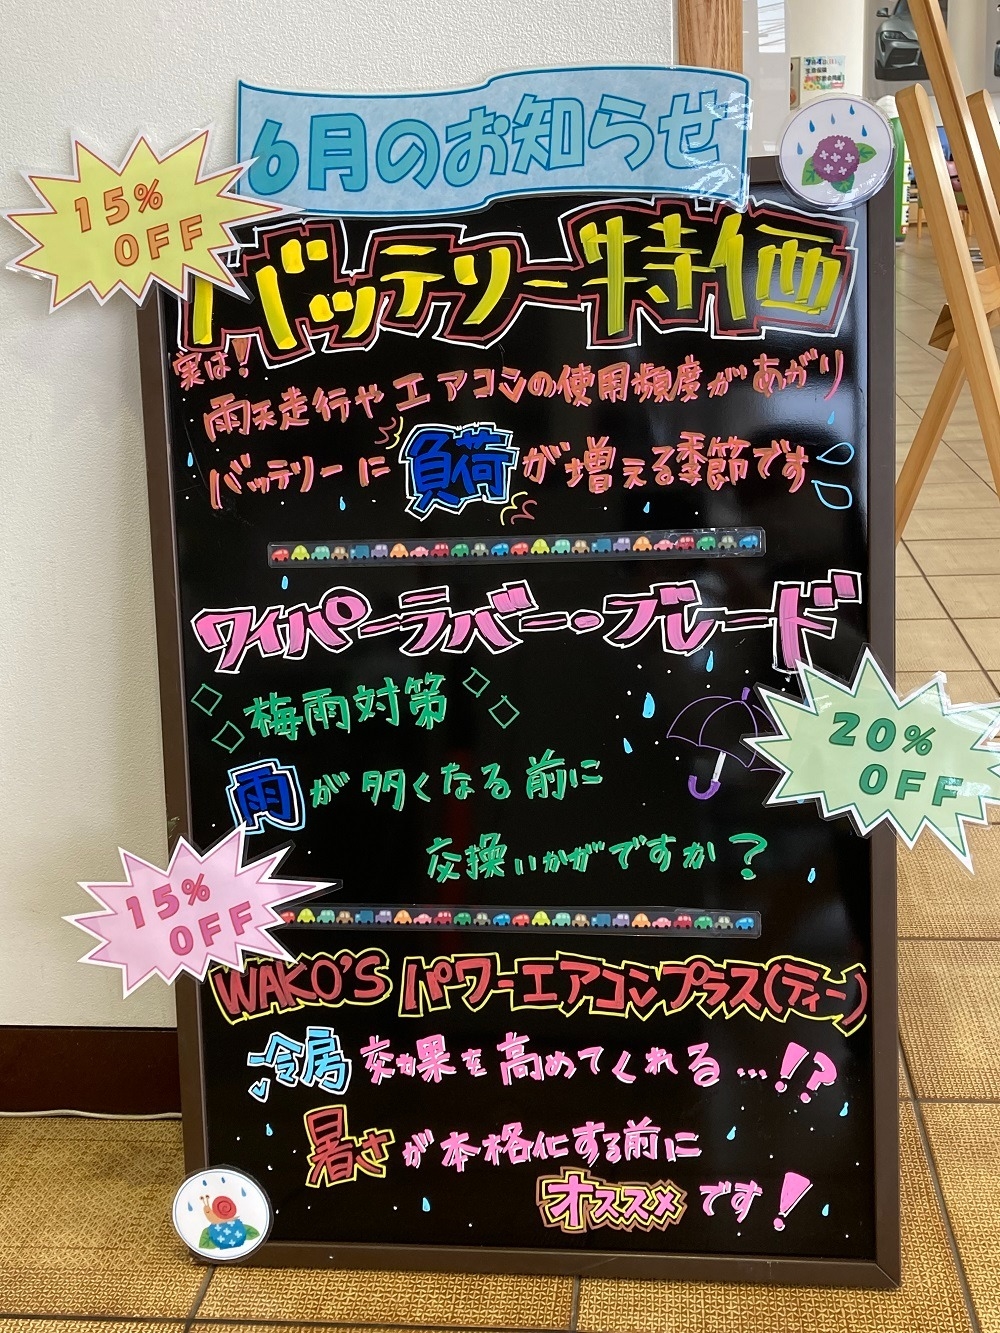 6月のお知らせ
15%
OFF
バッテリー特価
実は!
雨天走行やエアコンの使用頻度があがり
バッテリーに負荷が増える季節です
ワイパーラバー・ブレード
梅雨対策
20%
OFF
雨が多くなる前に
交換いかがですか?
15%
OFF
WAKO'S パワーエアコンプラス(ティー)
冷房効果を高めてくれる…!?
暑さが本格化する前に
オススメです!